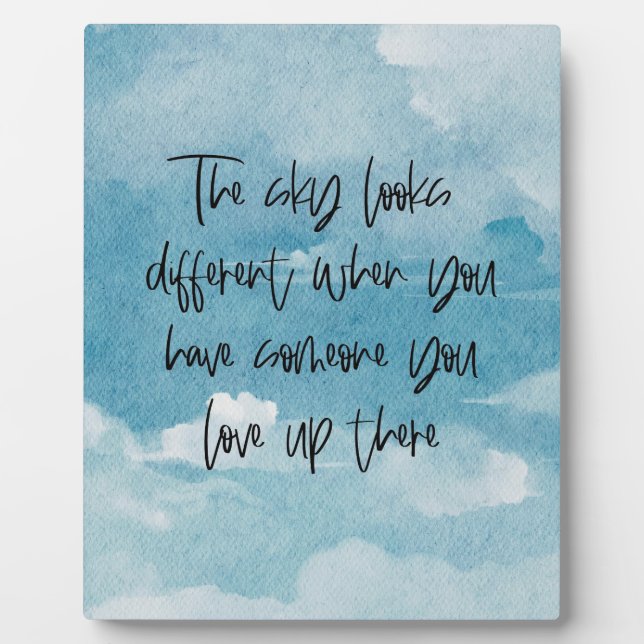 The sky looks
different when you
have someone you
love up there